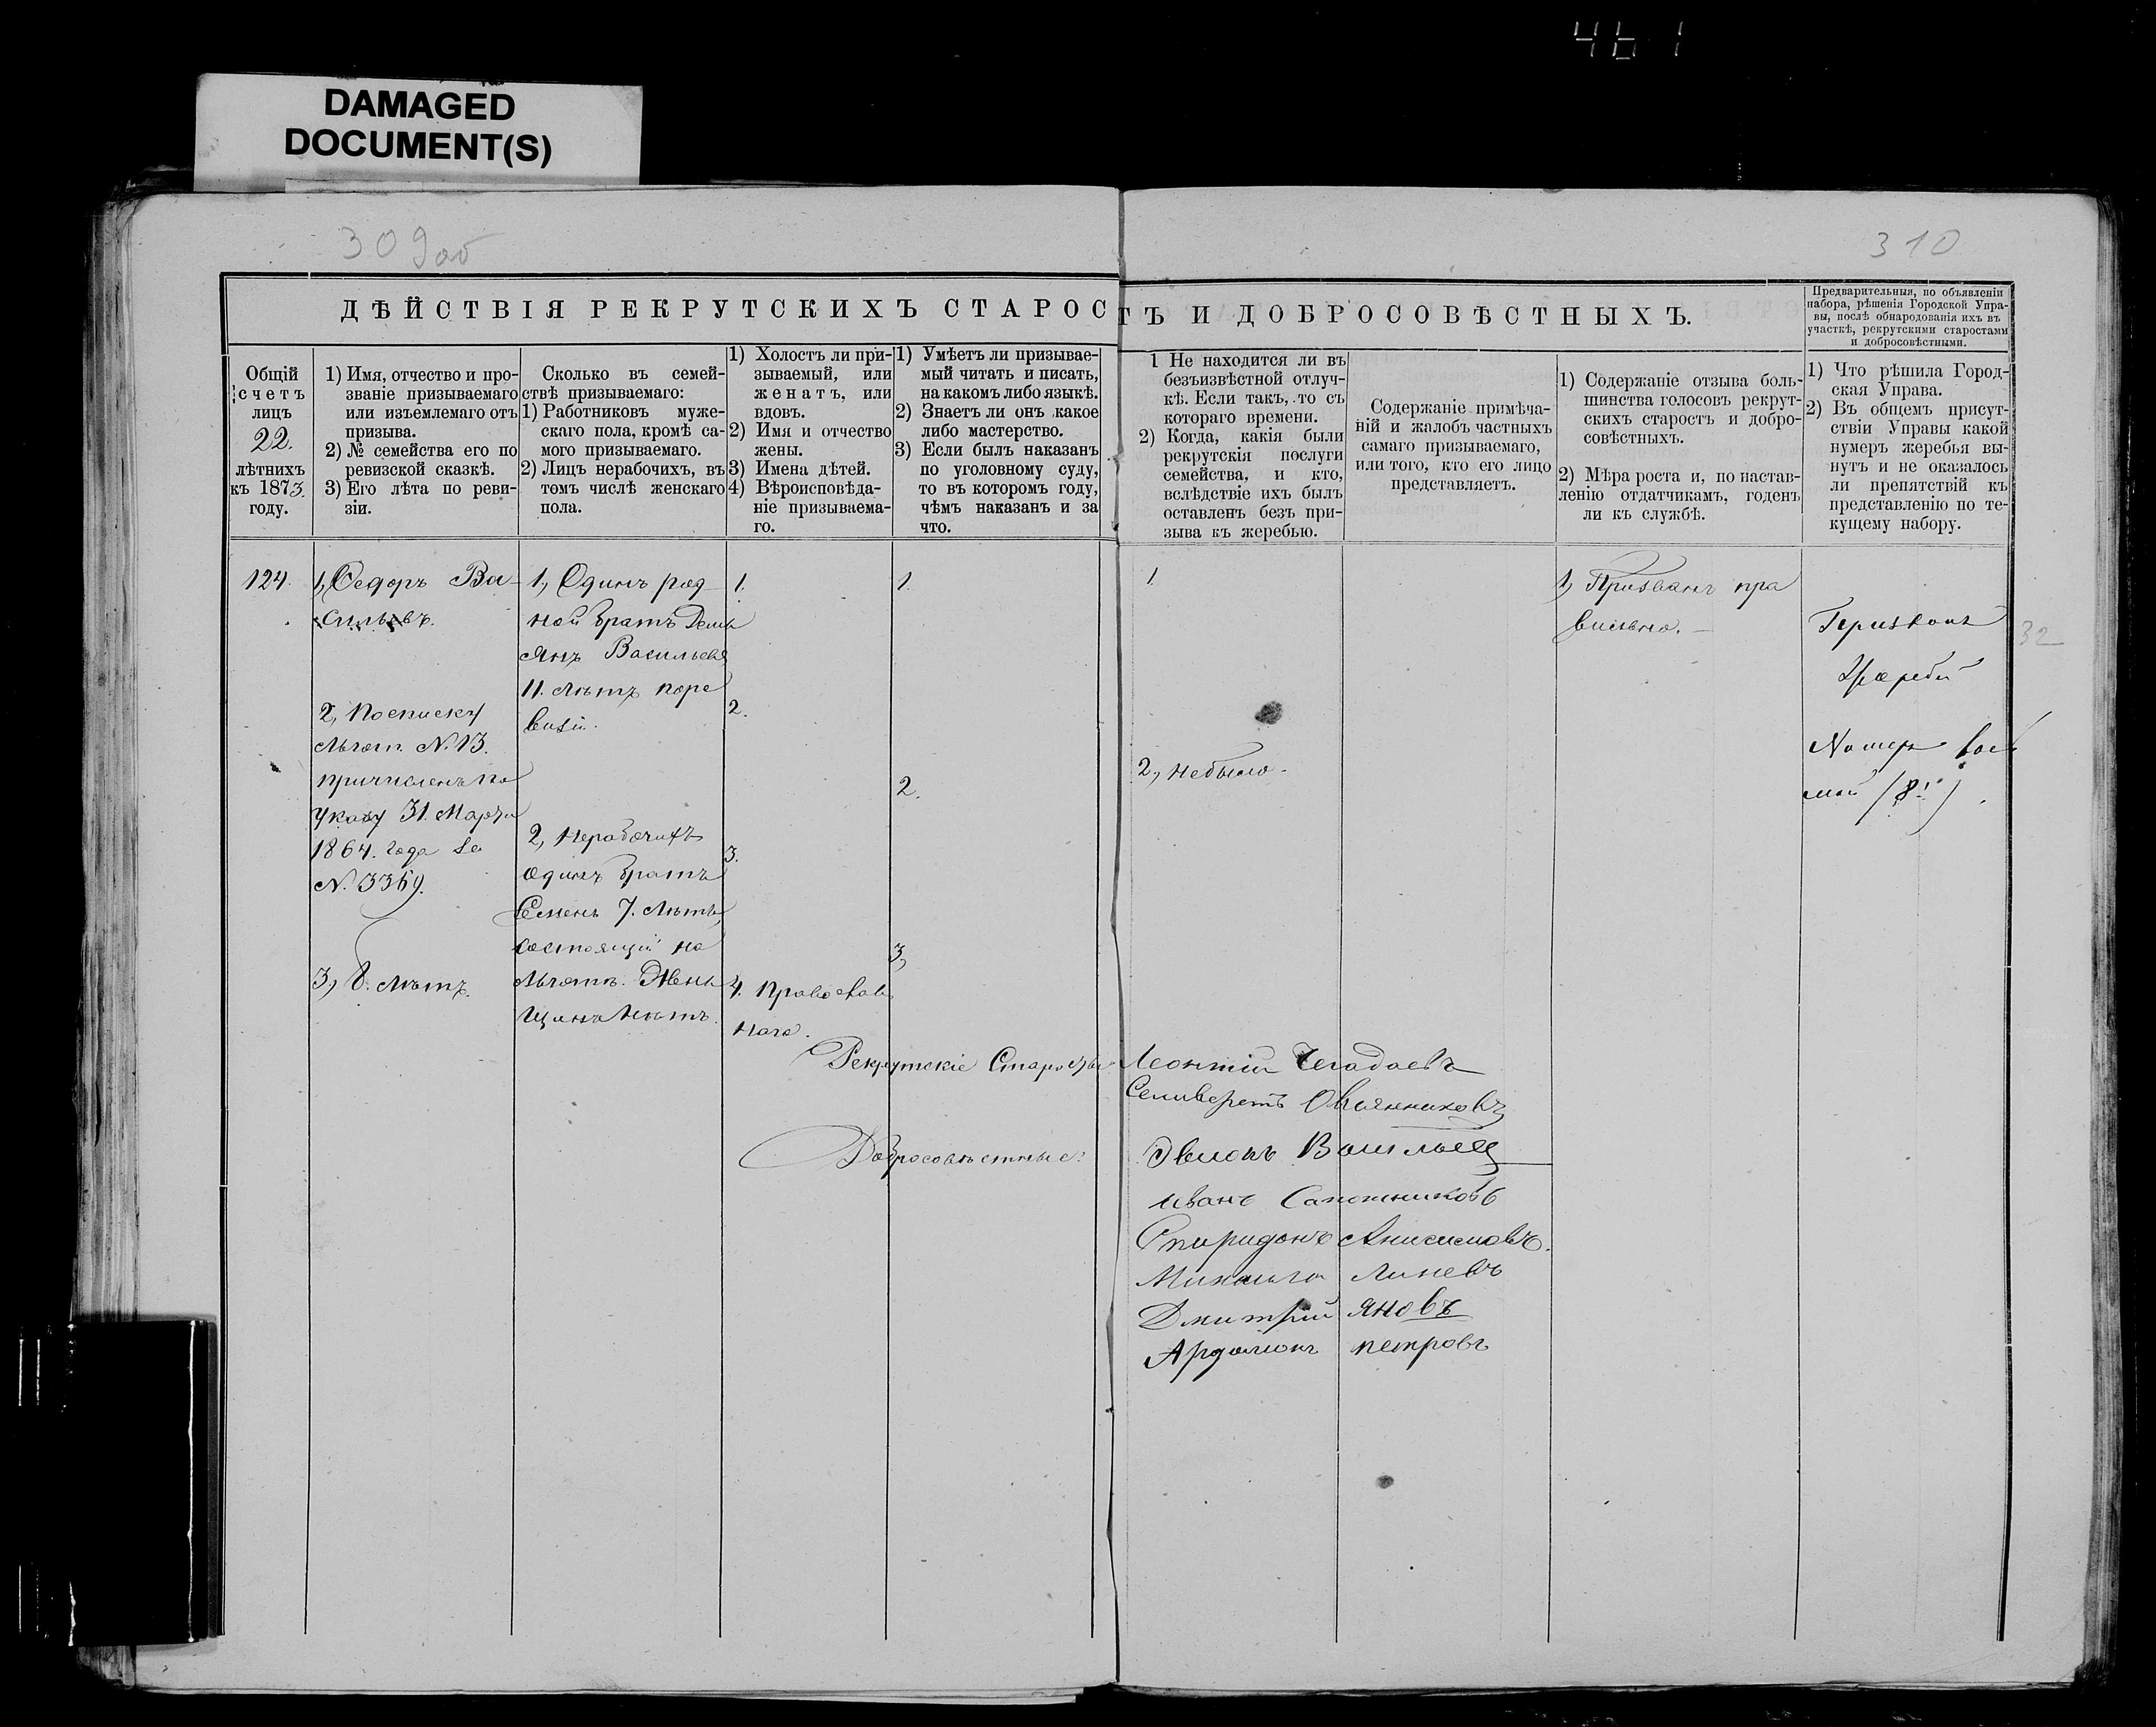 461
DAMAGED
DOCUMENT(S)
309об
310
ДѢЙСТВІЯ РЕКРУТСКИХЪ СТАРОСТЪ И ДОБРОСОВѢСТНЫХЪ.
Предварительныя, по объявленіи
набора, рѣшенія Городской Упра-
вы, послѣ обнародованія ихъ въ
участкѣ, рекрутскими старостами
и добросовѣстными.
Общій
счетъ
лицъ
22.
лѣтнихъ
къ 1873.
году.
1) Имя, отчество и про-
званіе призываемаго
или изъемлемаго отъ
призыва.
2) № семейства его по
ревизской сказкѣ.
3) Его лѣта по реви-
зіи.
Сколько въ семей-
ствѣ призываемаго:
1) Работниковъ муже-
скаго пола, кромѣ са-
мого призываемаго.
2) Лицъ нерабочихъ, въ
томъ числѣ женскаго
пола.
1) Холостъ ли при-
зываемый, или
женатъ, или
вдовъ.
2) Имя и отчество
жены.
3) Имена дѣтей.
4) Вѣроисповѣда-
ніе призываема-
го.
1) Умѣетъ ли призывае-
мый читать и писать,
на какомъ либо языкѣ.
2) Знаетъ ли онъ какое
либо мастерство.
3) Если былъ наказанъ
по уголовному суду,
то въ которомъ году,
чѣмъ наказанъ и за
что.
1 Не находится ли въ
безъизвѣстной отлуч-
кѣ. Если такъ, то съ
котораго времени.
2) Когда, какія были
рекрутскія послуги
семейства, и кто,
вслѣдствіе ихъ былъ
оставленъ безъ при-
зыва къ жеребью.
Содержаніе примѣча-
ній и жалобъ частныхъ
самаго призываемаго,
или того, кто его лицо
представляетъ.
1) Содержаніе отзыва боль-
шинства голосовъ рекрут-
скихъ старостъ и добро-
совѣстныхъ.
2) Мѣра роста и, по настав-
ленію отдатчикамъ, годенъ
ли къ службѣ.
1) Что рѣшила Город-
ская Управа.
2) Въ общемъ присут-
ствіи Управы какой
нумеръ жеребья вы-
нутъ и не оказалось
ли препятствій къ
представленію по те-
кущему набору.
124.
1, Федоръ Ва-
сильевъ.
2, По списку
льгот. N. 13.
причисленъ по
указу 31. Марта
1864. года за
N. 3369.
3, 8. лѣтъ.
1, Одинъ род-
ной братъ Демь
янъ Васильевъ
11. лѣтъ по ре
визіи.
2, Нерабочихъ
одинъ братъ
Семенъ 7. лѣтъ,
состоящій на
льготѣ. Жен
щинъ нѣтъ.
1.
2.
3.
4. Православ
наго.
1.
2.
3,
1.
2, Небыло.
1, Призванъ пра
вильно.
Призванъ
Жребій
Номеръ вось
мой (8й)
32
Рекрутскіе Старосты Леонтій Чегодаевъ
Селиверстъ Овчинниковъ
Добросовѣстные:
Васильев
Иванъ Сапожниковъ
Спиридонъ Анисимовъ.
Михайла Линевъ
Дмитрій Яновъ
Ардалионъ петровъ